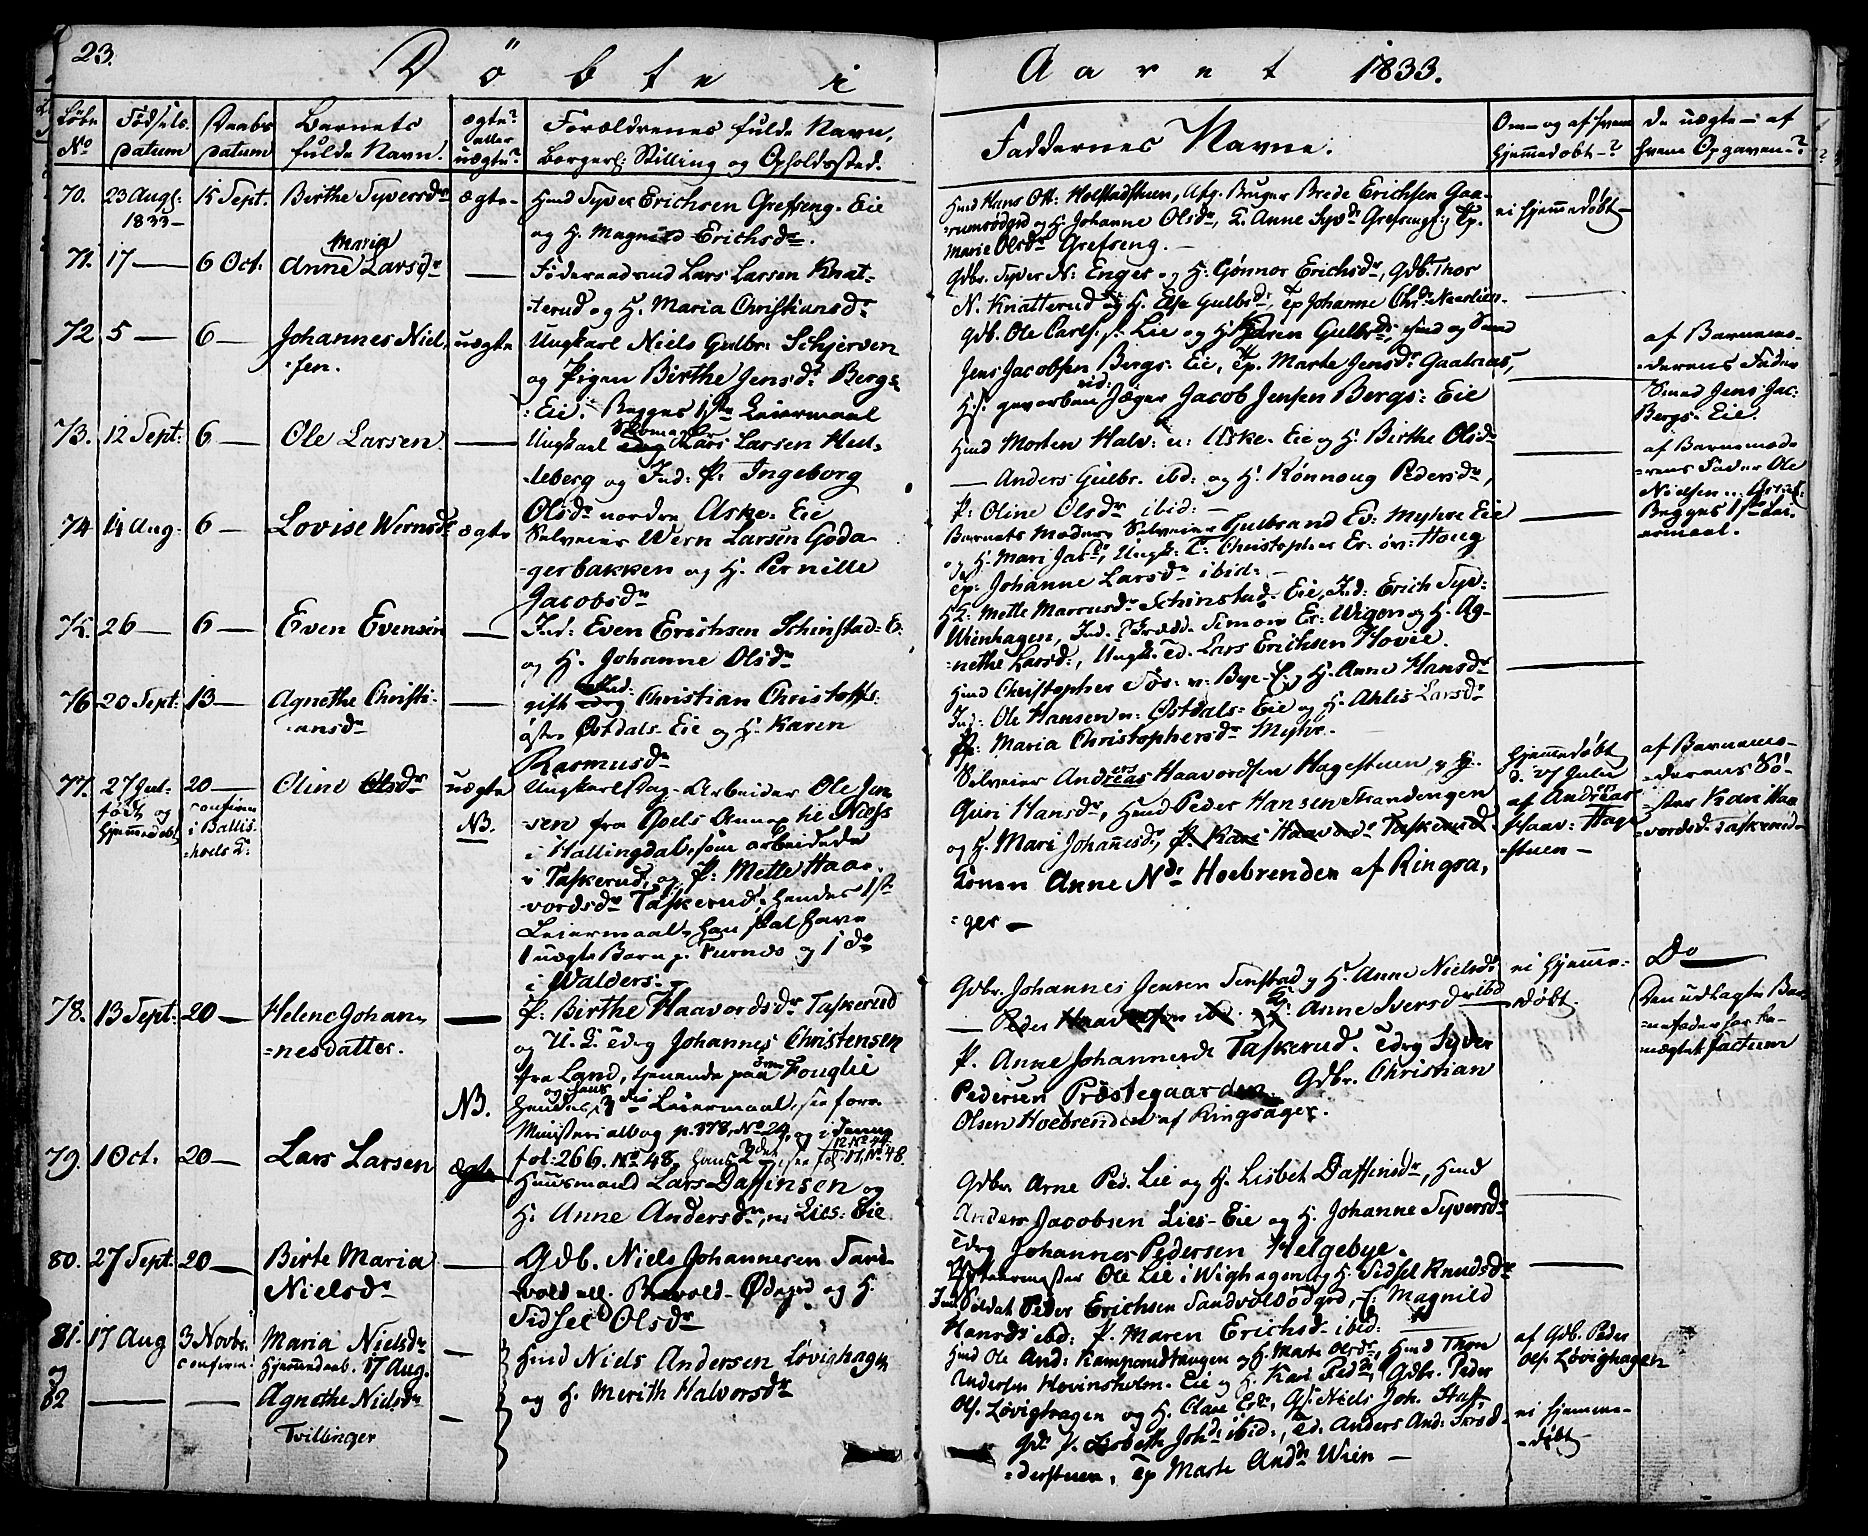 23.
Döbte i Aaret 1833.
Löbe No
Födsels. Datum
Daabs Datum
Barnets fulde Navn.
ægte? eller uægte?
Forældrenes fulde Navn, Borgerl: Stilling og Opholdssted.
Faddernes Navne.
Om- og af hvem hjemmedöbt-?
De uægte- af hvem Opgaven-?
70. 23 Aug: 1833- 15 Sept. Birthe Syversdr ægte-
Hmd Syver Erichsen Grefseng. Eie
og H. Magnild Erichsdr.
Hmd Hans Ols: Holstadstuen, Afg. Bruger Brede Erichsen Gaa-
=rumsödegrd og H. Johanne Olsdr, T. Anne Syvdr Grefsengs, Tp.
Marie Olsdr Grefseng. -
ei hjemmedöbt-
71. 17 — 6 Oct. Anne Maria Larsdr —
Föderaadsmd Lars Larsen Knat-
terud og H. Maria Christiansdr
Gdbr. Syver N: Enger og H: Gönnor Erichsdr, Gdb. Thor
N. Knatterud og H. Else Gulbrdr, Tp Johanne Chrdr Naerlien.
72 5 — 6 — Johannes Niel-
=sen. uægte
Ungkarl Niels Gulbr: Schjerven
og Pigen Birthe Jensdr Bergs=
=Eie. Begges 1ste Leiermaal
Gdb. Ole Carls: s. Lie og H. Karen Gulbrdr, Hmd og Smed
Jens Jacobsen Bergs: Eie, Tp. Marte Jensdr Gaalaas,
H.S. gevorben rid: Jæger Jacob Jensen Bergs: Eie
af Barnemo-
=derens Fader
Smed Jens Jac:
Bergs: Eie.
73. 12 Sept: 6 — Ole Larsen —
Ungkarl Skomager Lars Larsen Hul-
leberg og Ind: P: Ingeborg
Olsdr nordre Aske. Eie
Hmd Morten Halv: n: Aske. Eie og H. Birthe Olsdr
— Anders Gulbr. ibd: og H. Rönnoug Pedersdr,
P. Oline Olsdr ibid: -
af Barnemode
=rens Fader Ole
Nielsen
Begges 1ste Lei-
ermaal.
74 14 Aug. 6 — Lovise Wernsdr ægte
Selveier Wern Larsen Goda-
-gerbakken og H. Pernille
Jacobsdr
Barnets Moder, Selveier Gulbrand Ev: Myhre Eie
og H. Mari Jacdr, Ungk: T: Christopher Er: öv: Houg
Tp: Johanne Larsdr ibid: -
75. 26 — 6 — Even Evensen —
Ind: Even Erichsen Schinstad: E.
og H. Johanne Olsdr
HT: Mette Marcusdr Schinstad Eie, Ind: Erich Syv:
Wienhagen, Ind. Simon Er: Wigen og H. Ag-
=nethe Larsd:, Ungk. Td. Lars Erichsen Hovie.
76 20 Sept: 13 — Agnethe Christi-
ansdr —
gift Ind: Christian Christoffs:
östre Östdals. Eie og H. Karen
Rasmusdr
Hmd Christopher Tös: n: Bye-E, H. Anne Hansdr
Ind: Ole Hansen n: Östdals: Eie og H. Ahlis Larsdr
P: Maria Christophersdr Myhr.
77. 27 Jul: född og hjemmedöbt 20 — confirm: i Ballis-
hoels K: Oline Olsdr uægte NB.
Ungkarl Dag-Arbeider Ole Jen
-sen fra til Næss
i Hallingdal, som arbeidede
i Taskerud, og P: Mette Haa-
vordsdr Taskerud, hendes 1ste
Leiermaal, han skal have
1 uægte Barn p. Furnæs og 1 do
i Walders. -
Selveier Anders Haavordsen Hagestuen, og H:
Guri Hansdr, Hmd Peder Hansen Strandengen
og H. Mari Johannesdr, P. Kari Haavordsdr Taskerud.
Konen Anne Ndr Hoebrenden af Ringsa,
=ger —
hjemmedöbt
d. 27 Julii
af Anders
Haav: Hage
=stuen-
af Barnemo-
=derens Sö-
ster Kari Haa
vordsd: Taskerud-
78. 13 Sept: 20 — Helene Johan-
=nesdatter. — NB.
P: Birthe Haavordsdr Taskerud
og U.K. Tdrg Johannes Christensen
fra Land, tjenende paa övre Fouglie
hendes og hans 3die Leiermaal, see forr.
Ministerialbog p. 378, No 24, og i denne
fol: 266. No 48, hans 2det, see fol 12 No 44. 17, No 48.
Gdbr. Johannes Jensen Tenstad og H. Anne Nielsdr
— Peder Haavordsen ibd. Tp. Anne Iversdr ibd
P. Anne Johannesdr Taskerud. Tdrg Syver
Pedersen Præstegaarden. Gdbr. Christian
Olsen Hoebrenden af Ringsager.
ei hjemme-
döbt.
Do —
Den udlagte Bar
=nefader har be-
=nægtet factum
79. 1 Oct. 20 — Lars Larsen ægte
Huusmand Lars Daffinsen og
H. Anne Andersdr, n: Lies: Eie.
Gdbr. Arne Ped. Lie og H. Lisbet Daffinsdr, Hmd
Anders Jacobsen Lies-Eie og H. Johanne Syversdr
Tdrg Johannes Pedersen Helgebye.
80. 27 Sept: 20 — Birte Maria
Nielsdr —
Gdb. Niels Johannesen Sand-
vold ell. Brovold- Ödegrd og H.
Sidsel Olsdr
Ole Lie i Wighagen og H. Sidsel Knudsdr
Ind Soldat Peder Erichsen Sandvoldödgrd, H Magnild
Hansdr ibd: P. Maren Erichsd- ibid:
81. 17 Aug 3 Novbr. confirm: Maria Nielsdr
hjemmedaab. 17 Aug. —
og
82 — — Agnethe Nielsdr —
Tvillinger
Hmd Niels Andersen Lövighagen
og H. Merith Halvorsdr
Hmd Ole And: Kampomdtangen og H. Marte Olsdr, Hmd Thor
Andersen Hovinsholm. Eie og H. Kari Peddr, Gdbr. Peder
Ols. Lövighagen og H. Olave Erdr, Gs. Niels Joh. Staff,
Gdr P. Lisbeth Johdr ibid:, Td. Anders And: Skræd-
=derstuen, Tp Marte Anddr Wien —
af Gdb. Peder
Ols. Lövighagen
ei hjemme-
=döbt